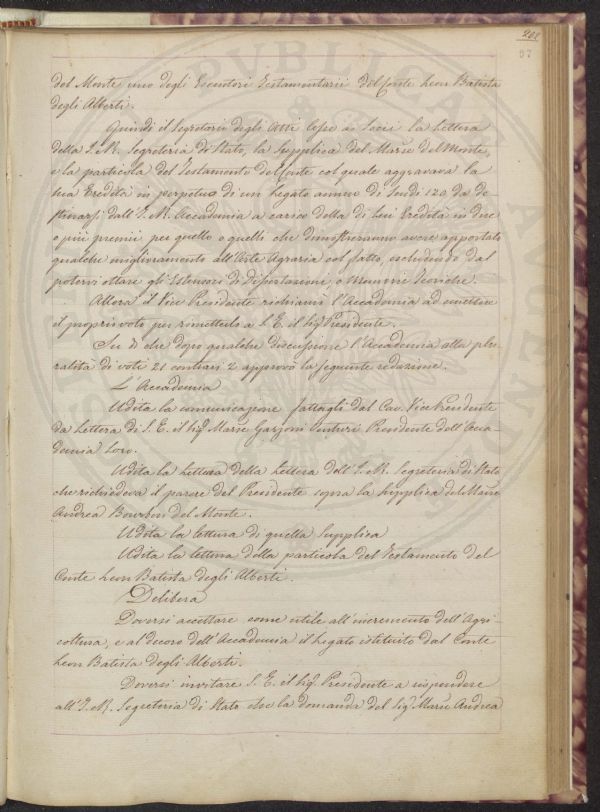 201
97
del Monte uno degli Esecutori Testamentarii del Conte Leon Batista
degli Alberti.
Quindi il Segretario degli Atti lesse ai Socii la Lettera
della I. R. Segreteria di Stato, la Supplica del Marse Del Monte,
e la particola del Testamento del Conte col quale aggravava la
sua Eredità in perpetuo di un Legato annuo di Scudi 120 da de
stinarsi dall'I. R. Accademia a carico della di lui Eredità in due
o più premii per quello o quelli che dimostreranno avere apportato
qualche miglioramento all'Arte Agraria col fatto, escludendo dal
potervi ottare gli Estensori di Disertazioni, o Memorie Teoriche.
Allora il Vice Presidente richiamò l'Accademia ad emettere
il proprio voto per rimetterlo a S. E. il Sig. Presidente.
Su di che dopo qualche discussione l'Accademia alla plu-
ralità di voti 21 contrari 2 approvò la seguente redazione.
L'Accademia
Udita la comunicazione fattagli dal Cav. Vice Presidente
da Lettera di S. E. il Sig. Marse Garzoni Venturi Presidente dell'Acca-
demia Loro.
Udita la Lettura della Lettera dell'I. R. Segreteria di Stato
che richiedeva il parere del Presidente sopra la Supplica del Marse
Andrea Bourbon del Monte.
Udita la lettura di quella Supplica
Udita la lettura della particola del Testamento del
Conte Leon Batista degli Alberti.
Delibera
Doversi accettare come utile all'incremento dell'Agri-
coltura, e al decoro dell'Accademia il Legato istituito dal Conte
Leon Batista degli Alberti.
Doversi invitare S. E. il Sig. Presidente a rispondere
all'I. R. Segreteria di Stato che la domanda del Sig. Marse Andrea